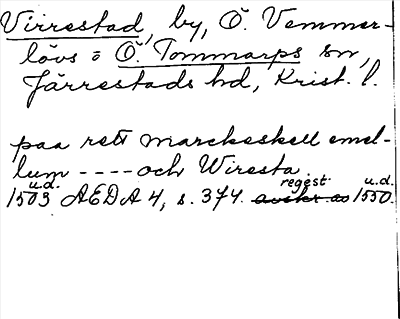 Virrestad, by, Ö. Vemmer-
lövs o Ö. Tommarps sn,
Järrestads hd, Krist. l.
paa rett marckeskell emel-
lum ---- och Wiresta.
u.d. regest u.d.
1503 AEDA 4, s. 374. avskr av 1550.